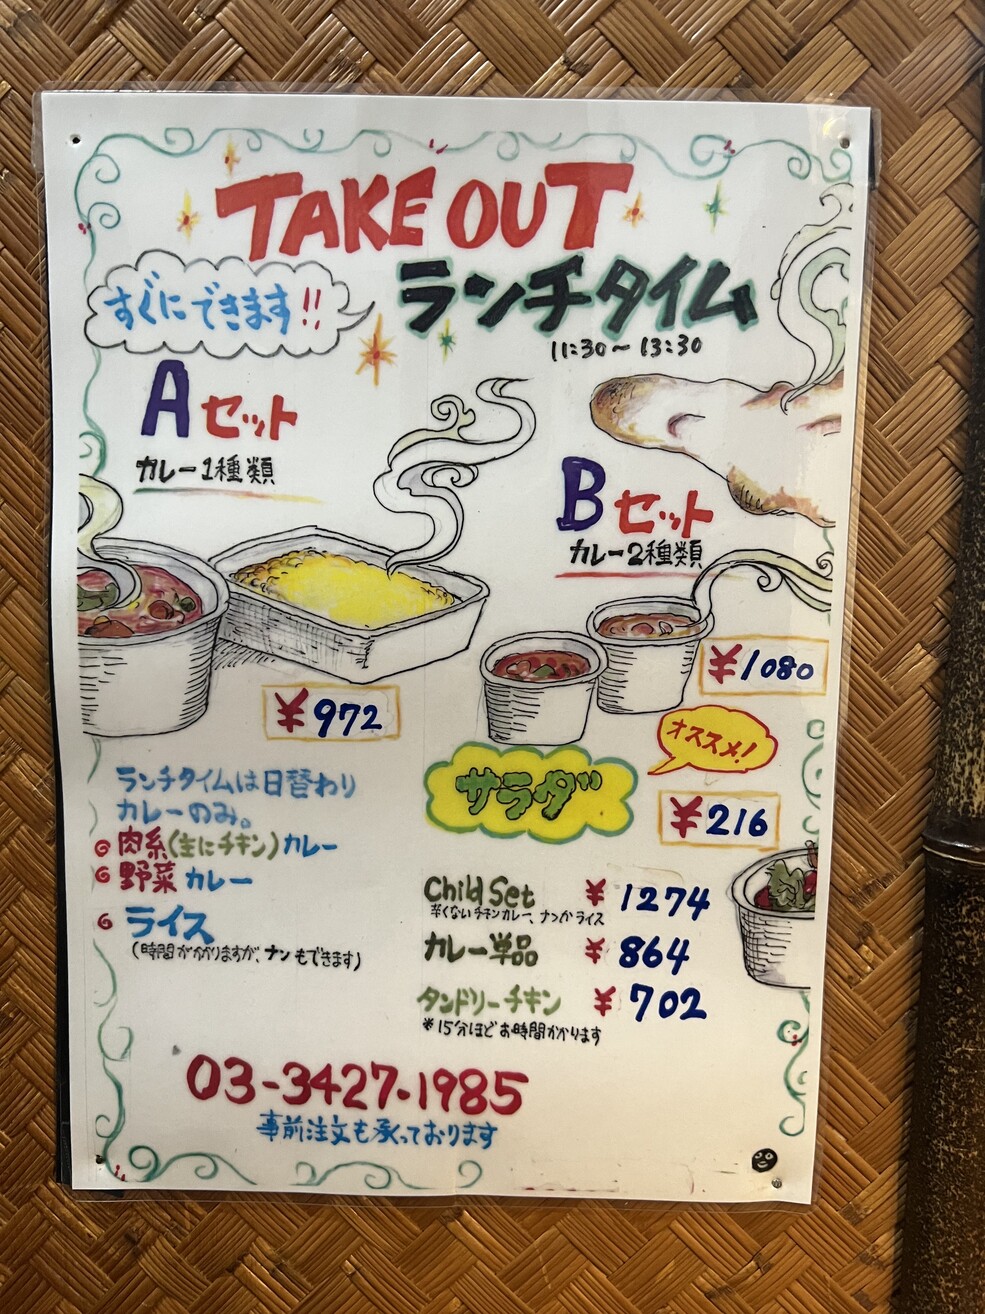 TAKE OUT
すぐにできます!!
ランチタイム
11:30〜13:30
Aセット
カレー1種類
¥972
Bセット
カレー2種類
¥1080
オススメ!
サラダ
¥216
ランチタイムは日替わり
カレーのみ。
肉系(主にチキン)カレー
野菜カレー
ライス
(時間がかかりますが、ナンもできます)
Child Set ¥1274
辛くないチキンカレー、ナンかライス
カレー単品 ¥864
タンドリーチキン ¥702
*15分ほどお時間かかります
03-3427-1985
事前注文も承っております